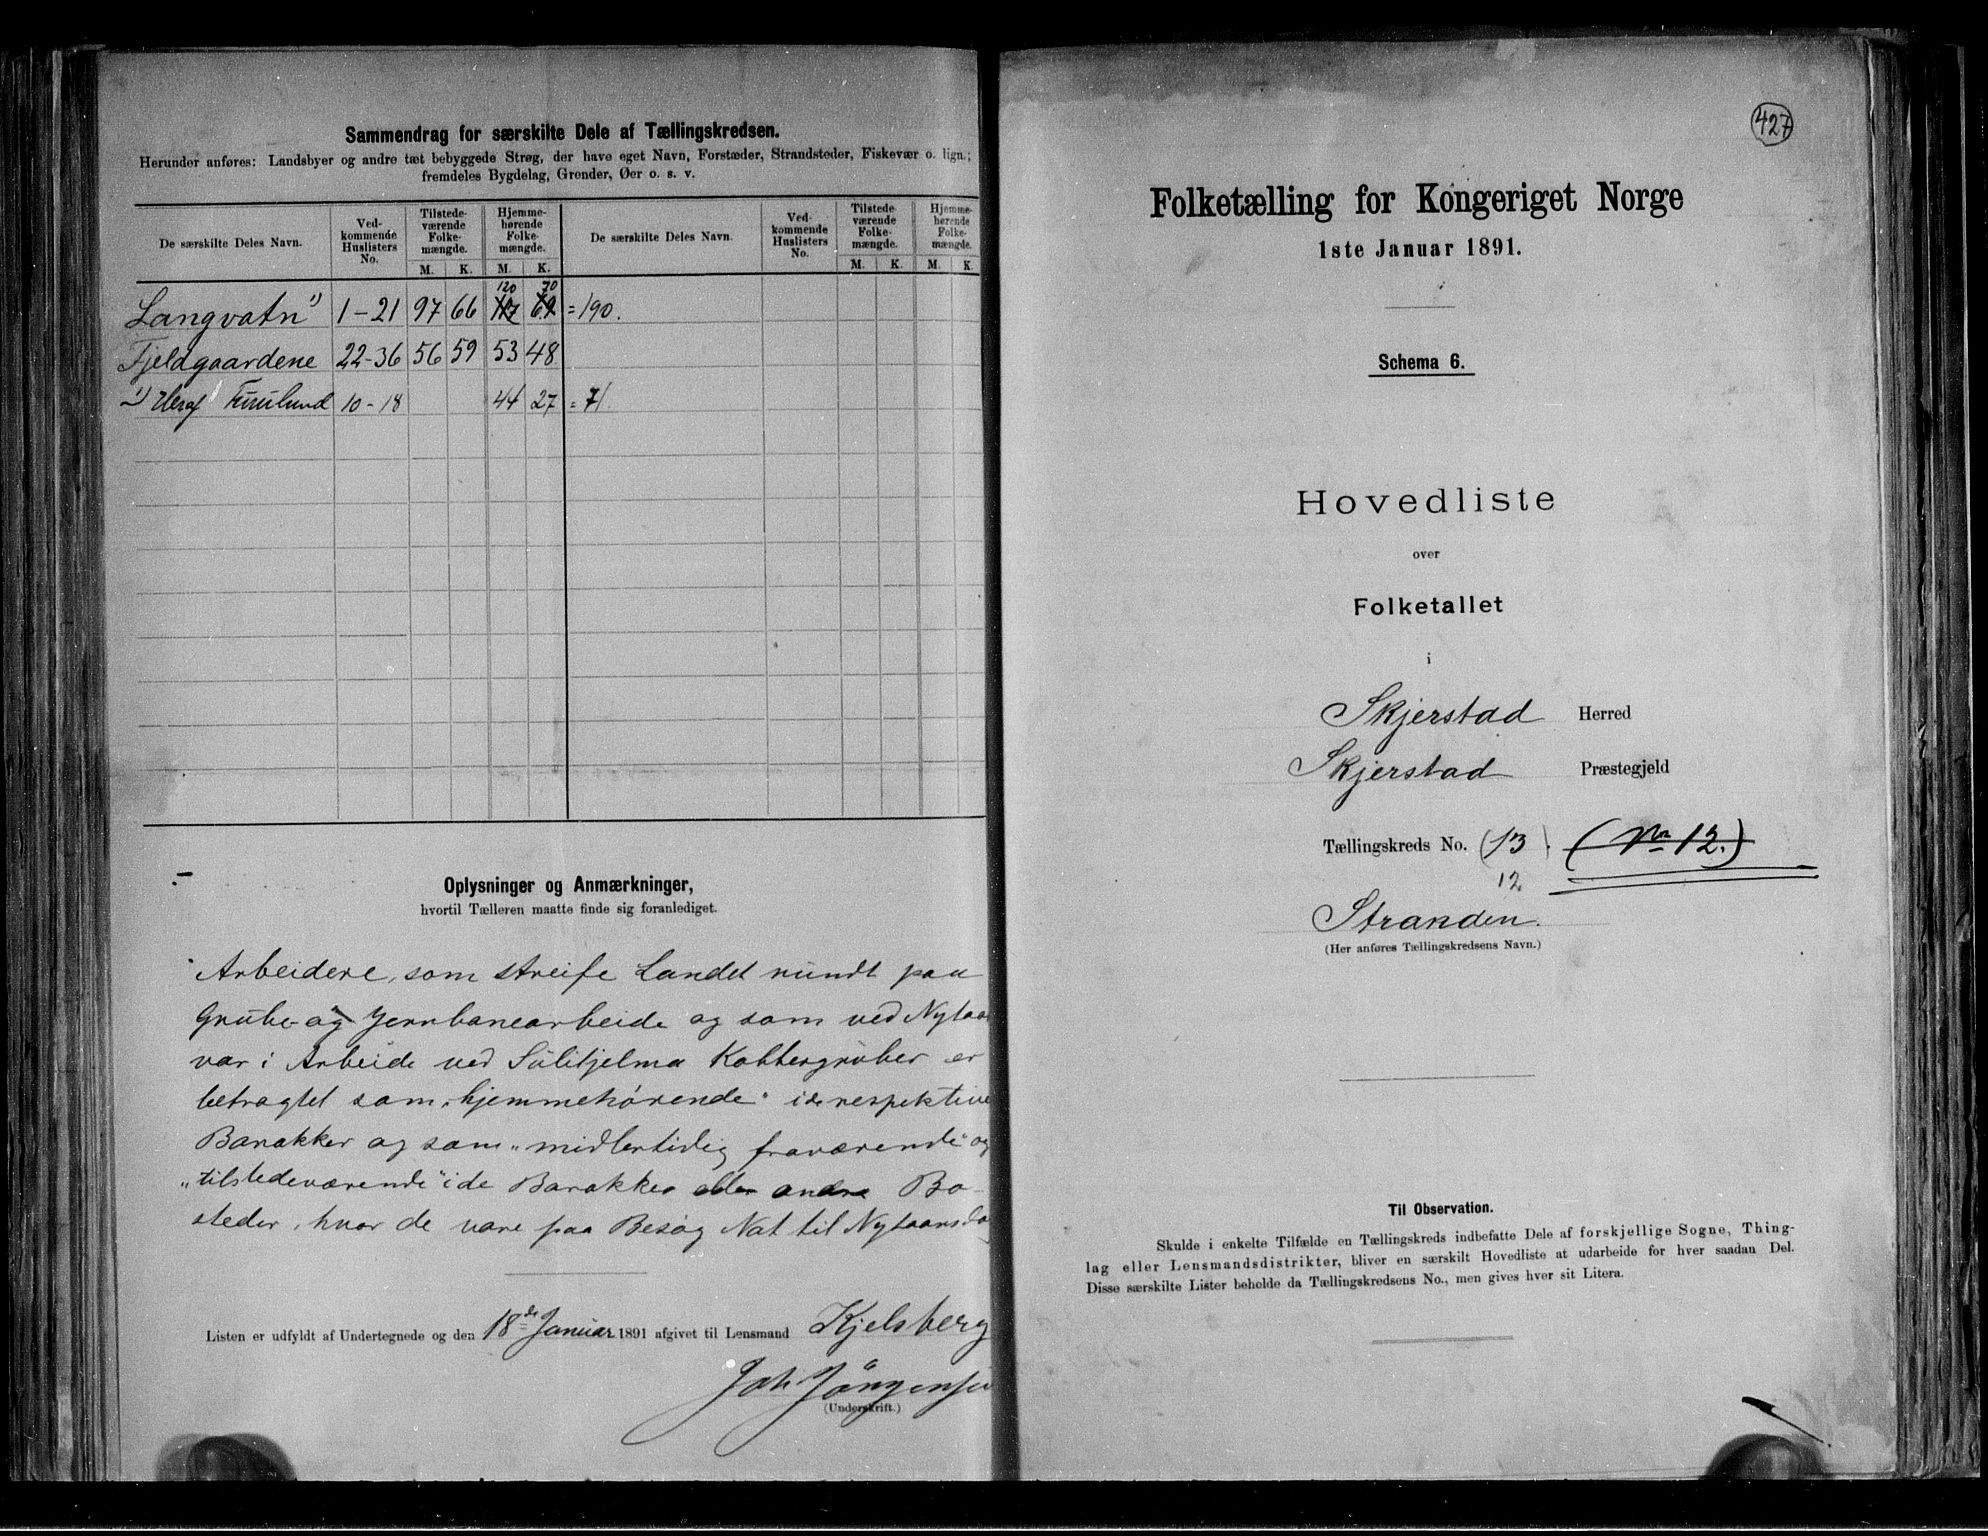 Sammendrag for særskilte Dele af Tællingskredsen.
Herunder anføres: Landsbyer og andre tæt bebyggede Strøg, der have eget Navn, Forstæder, Strandsteder, Fiskevær o. lign.;
fremdeles Bygdelag, Grender, Øer o. s. v.
De særskilte Deles Navn. Ved-kommende Huslisters No. Tilstede-værende Folke-mængde. Hjemme-hørende Folke-mængde. De særskilte Deles Navn. Ved-kommende Huslisters No. Tilstede-værende Folke-mængde. Hjemme-hørende Folke-mængde.
M. K. M. K. M. K. M. K.
120 70
Langvatn 1) 1-21 97 66 = 190.
Fjeldgaardene 22-36 56 59 53 48
1) Heraf Furulund 10-18 44 27 = 71.
Oplysninger og Anmærkninger,
hvortil Tælleren maatte finde sig foranlediget.
Arbeidere, som streife Landet rundt paa
Grube og Jernbanearbeide og som ved Nytaar
var i Arbeide ved Sulitjelma Kobbergruber er
betragtet som "hjemmehørende" i de respektive
Barakker og som "midlertidig fraværende" og
"tilstedeværende" i de Barakker eller andre Bo-
steder, hvor de vare paa Besøg Nat til Nytaarsdag
Listen er udfyldt af Undertegnede og den 18de Januar 1891 afgivet til Lensmand Kjelsberg
Joh Jörgensen
(Underskrift.)
427
Folketælling for Kongeriget Norge
1ste Januar 1891.
Schema 6.
Hovedliste
over
Folketallet
i
Skjerstad Herred
Skjerstad Præstegjeld
Tællingskreds No. (13). (No 12.)
12
Stranden.
(Her anføres Tællingskredsens Navn.)
Til Observation.
Skulde i enkelte Tilfælde en Tællingskreds indbefatte Dele af forskjellige Sogne, Thing-
lag eller Lensmandsdistrikter, bliver en særskilt Hovedliste at udarbeide for hver saadan Del.
Disse særskilte Lister beholde da Tællingskredsens No., men gives hver sit Litera.